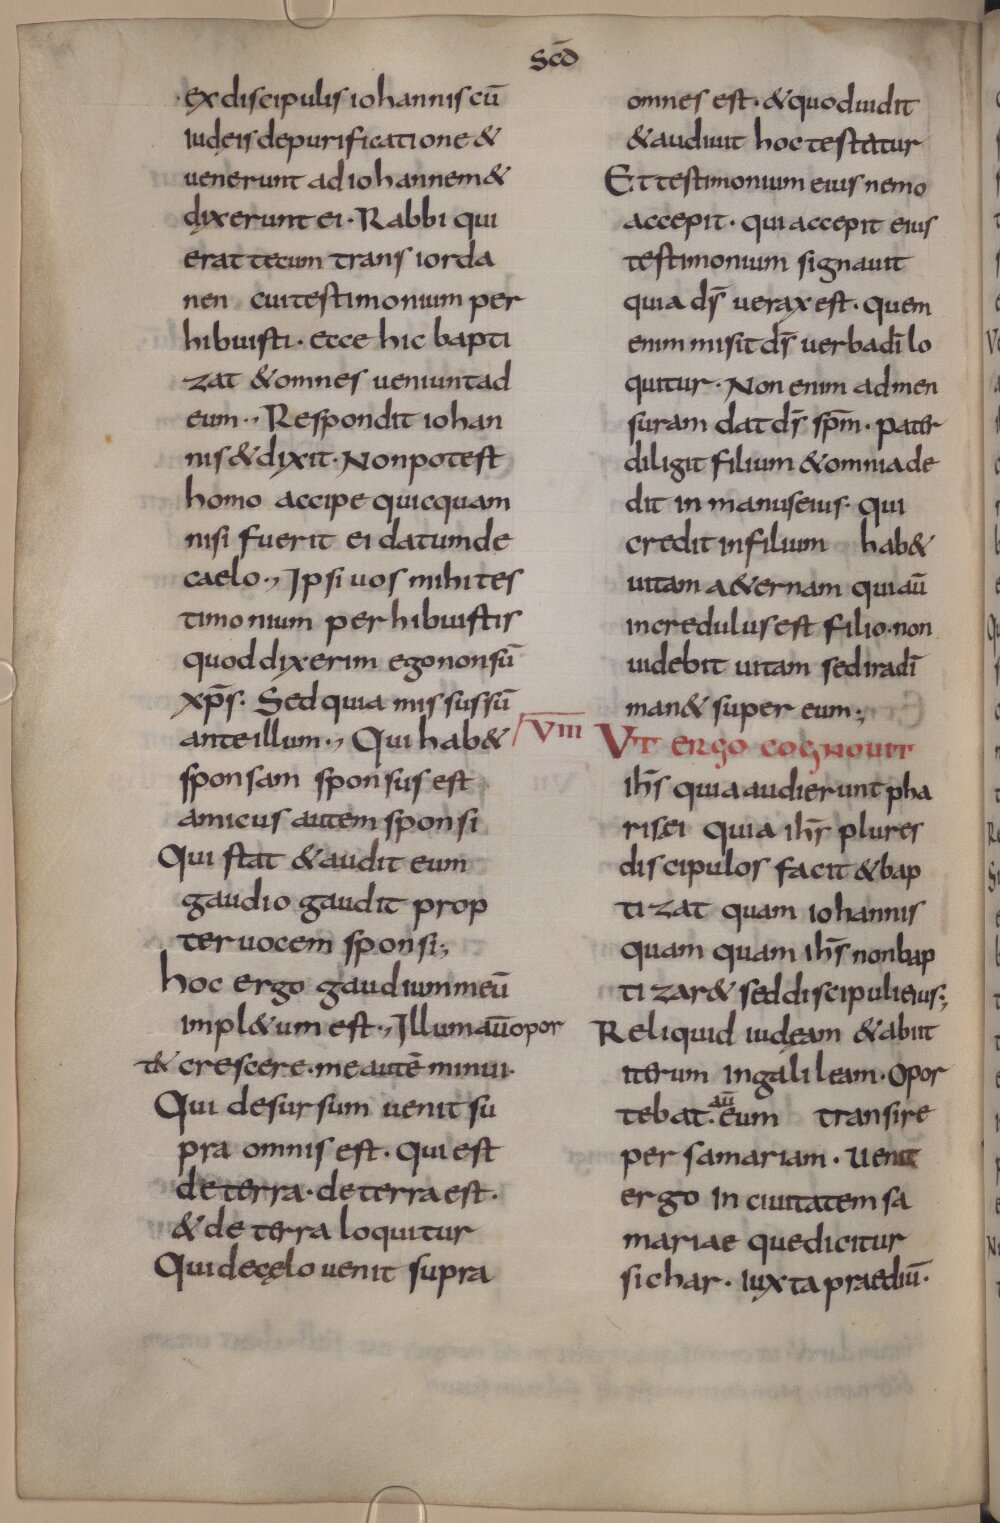 Scd̄
ex discipulis iohannis cū
iudeis de purificatione &
uenerunt ad iohannem &
dixerunt ei · Rabbi qui
erat tecum trans iorda
nen cui testimonium per
hibuisti · ecce hic bapti
zat & omnes ueniunt ad
eum ·, Respondit iohan
nis & dixit · Non potest
homo accipe quicquam
nisi fuerit ei datum de
caelo ·, Ipsi uos mihi tes
timonium perhibuistis
quod dixerim ego non sū
xp̄s · Sed quia missus sū
ante illum ·, Qui hab&
sponsam sponsus est
amicus autem sponsi
Qui stat & audit eum
gaudio gaudit prop
ter uocem sponsi;
hoc ergo gaudium meū
impl&um est ·, Illum aū opor
t& crescere · me autē minui ·
Qui desursum uenit su
pra omnis est · Qui est
de terra · de terra est ·
& de terra loquitur
Qui de cęlo uenit supra
omnes est · & quod uidit
& audiuit hoc testatur
Et testimonium eius nemo
accepit · qui accepit eius
testimonium signauit
quia ds̄ uerax est · Quem
enim misit ds̄ uerba dī lo
quitur · Non enim ad men
suram dat ds̄ spm̄ · pater
diligit filium & omnia de
dit in manus eius · Qui
credit in filium hab&
uitam a&ernam qui aū
incredulus est filio · non
uidebit uitam sed ira dī
man& super eum ;
VIII Ut ergo cognouit
ih̄s quia audierunt pha
risei quia ih̄s plures
discipulos facit & bap
tizat quam iohannis
quam quam ih̄s non bap
tizar& sed discipuli eius ;
Reliquid iudęam & abiit
iterum in galileam · Opor
tebat · aū eum transire
per samariam · Uenit
ergo in ciuitatem sa
mariae que dicitur
sichar · iuxta praediū ·